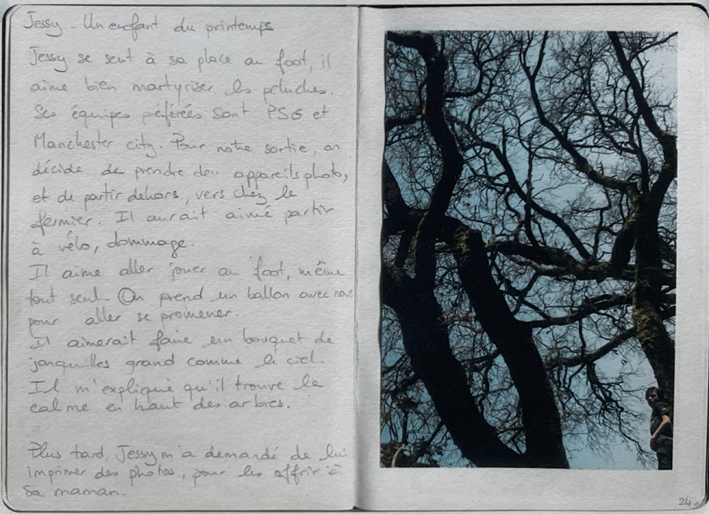 Jessy - Un enfant du printemps
Jessy se sent à sa place au foot, il
aime bien martyriser les peluches.
Ses équipes préférées sont PSG et
Manchester city. Pour notre sortie, on
décide de prendre deux appareils photo,
et de partir dehors, vers chez le
fermier. Il aurait aimé partir
à vélo, dommage.
Il aime aller jouer au foot, même
tout seul. On prend un ballon avec nous
pour aller se promener.
Il aimerait faire un bouquet de
jonquilles grand comme le ciel.
Il m'explique qu'il trouve le
calme en haut des arbres.
Plus tard, Jessy m'a demandé de lui
imprimer des photos, pour les offrir à
sa maman.
24